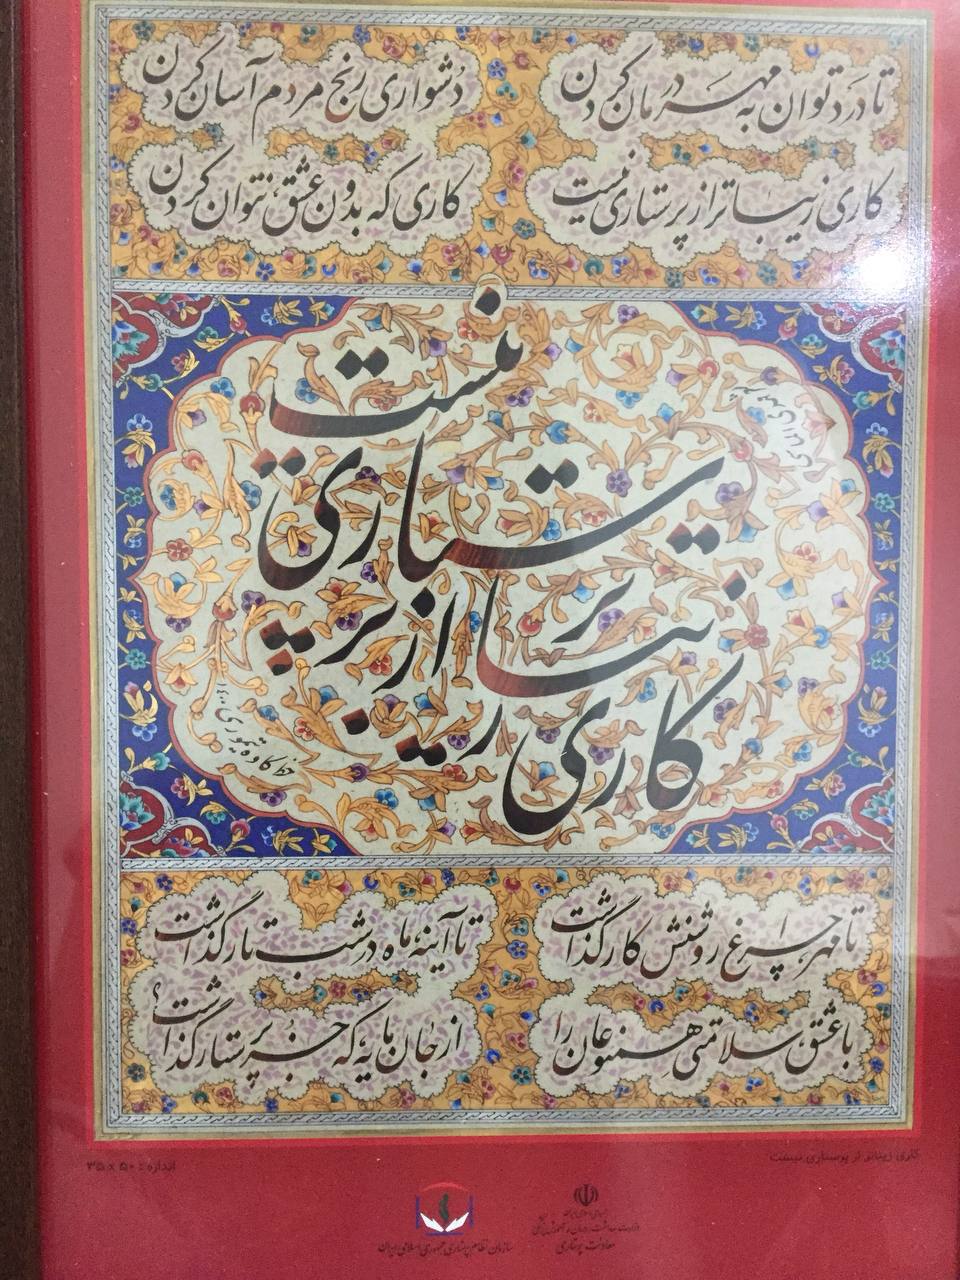 تا درد توان به مهر درمان کردن
دشواری رنج مردم آسان کردن
کاری زیباتر از پرستاری نیست
کاری که بدون عشق نتوان کردن
کاری زیباتر از پرستاری نیست
خط کاوه تیموری
تا مهر چراغ روشنش کار گذاشت
تا آینه ماه در شب تار گذاشت
با عشق سلامتی همنوعان را
از جان مایه که جز پرستار گذاشت؟
کاری زیباتر از پرستاری نیست
اندازه: ۵۰ x ۳۵
معاونت پرستاری
سازمان نظام پرستاری جمهوری اسلامی ایران